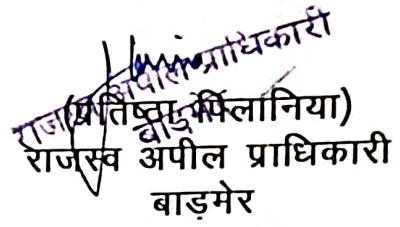 राजस्व अपील प्राधिकारी
बाड़मेर
(प्रतिष्ठा पिलानिया)
राजस्व अपील प्राधिकारी
बाड़मेर